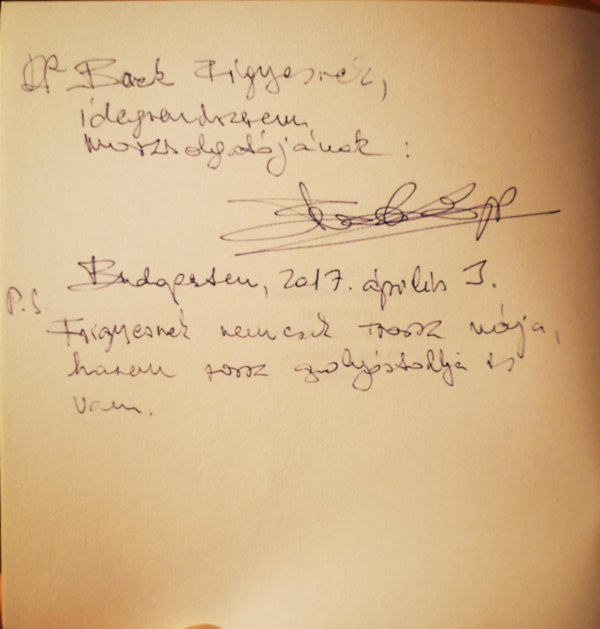 Back Frigyesnek,
idegrendszerem
morzsolgatójának:
Budapesten, 2017. április 3.
P.S.
Frigyesnek nemcsak rossz mája,
hanem rossz golyóstollja is
van.